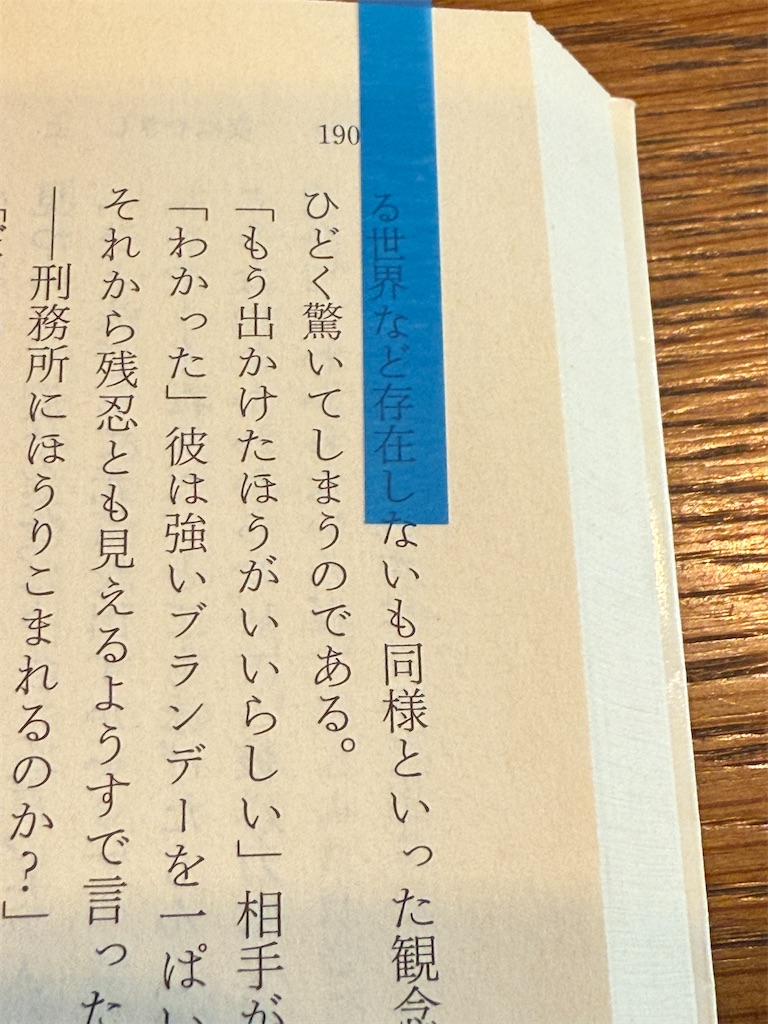 190
る世界など存在しないも同様といった観念
ひどく驚いてしまうのである。
「もう出かけたほうがいいらしい」相手が
「わかった」彼は強いブランデーを一ぱい
それから残忍とも見えるようすで言った
――刑務所にほうりこまれるのか？」